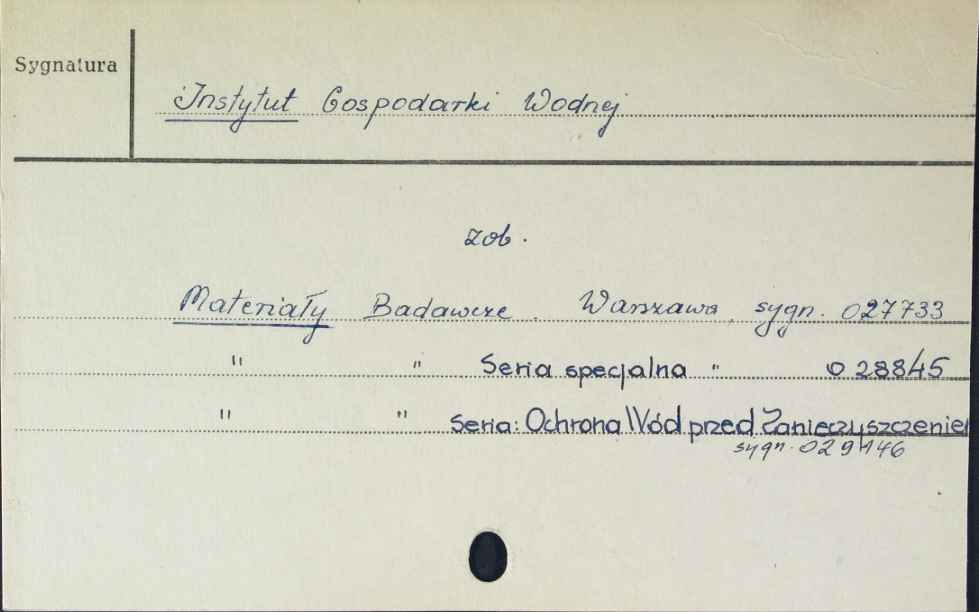 Sygnatura
Instytut Gospodarki Wodnej
zob.
Materiały Badawcze. Warszawa, sygn. 027733
" " Seria specjalna " 028845
" " Seria: Ochrona Wód przed Zanieczyszczeniem
sygn. 029146